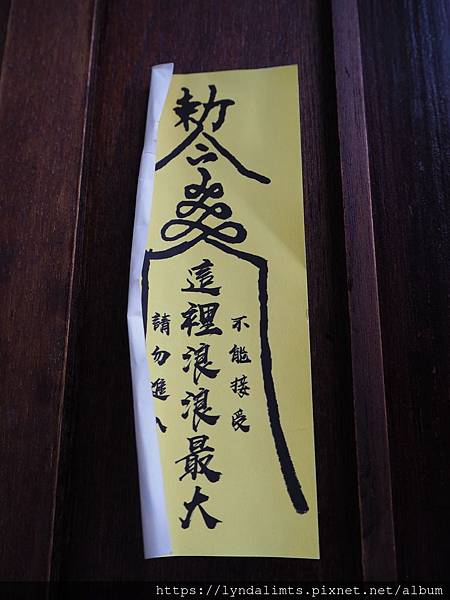 勅令
這裡浪浪最大
不能接受
請勿進入
https://lyndalimts.pixnet.net/album